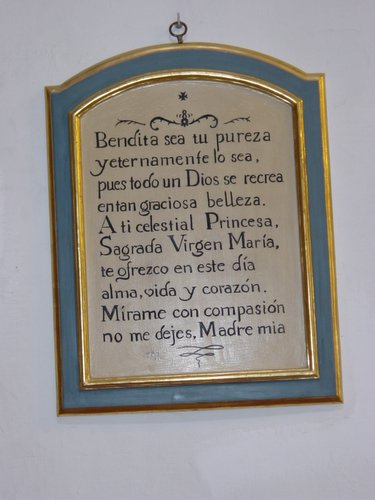 Bendita sea tu pureza
y eternamente lo sea,
pues todo un Dios se recrea
en tan graciosa belleza.
A ti celestial Princesa,
Sagrada Virgen María,
te ofrezco en este día
alma, vida y corazón.
Mírame con compasión
no me dejes, Madre mia